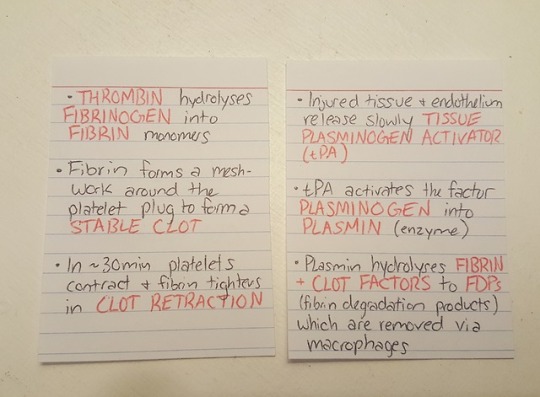 • THROMBIN hydrolyses
FIBRINOGEN into
FIBRIN monomers
• Fibrin forms a mesh-
work around the
platelet plug to form a
STABLE CLOT
• In ~30min platelets
contract + fibrin tightens
in CLOT RETRACTION
• Injured tissue + endothelium
release slowly TISSUE
PLASMINOGEN ACTIVATOR
(tPA)
• tPA activates the factor
PLASMINOGEN into
PLASMIN (enzyme)
• Plasmin hydrolyses FIBRIN
+ CLOT FACTORS to FDPs
(fibrin degradation products)
which are removed via
macrophages